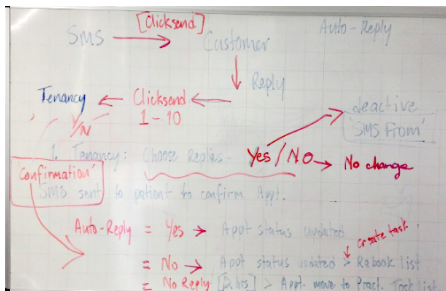 [Clicksend]
SMS → Customer Auto-Reply
↓ Reply
Tenancy ← Clicksend ←
1 - 10
Y/N
"SMS From"
1. Tenancy: Choose Replies - Yes/NO → No change
Confirmation
SMS sent to patient to confirm Appt.
Auto-Reply = Yes → Appt status updated
create task
= No → Appt status updated > Rebook list
= No Reply > Appt. move to Pract. Task list